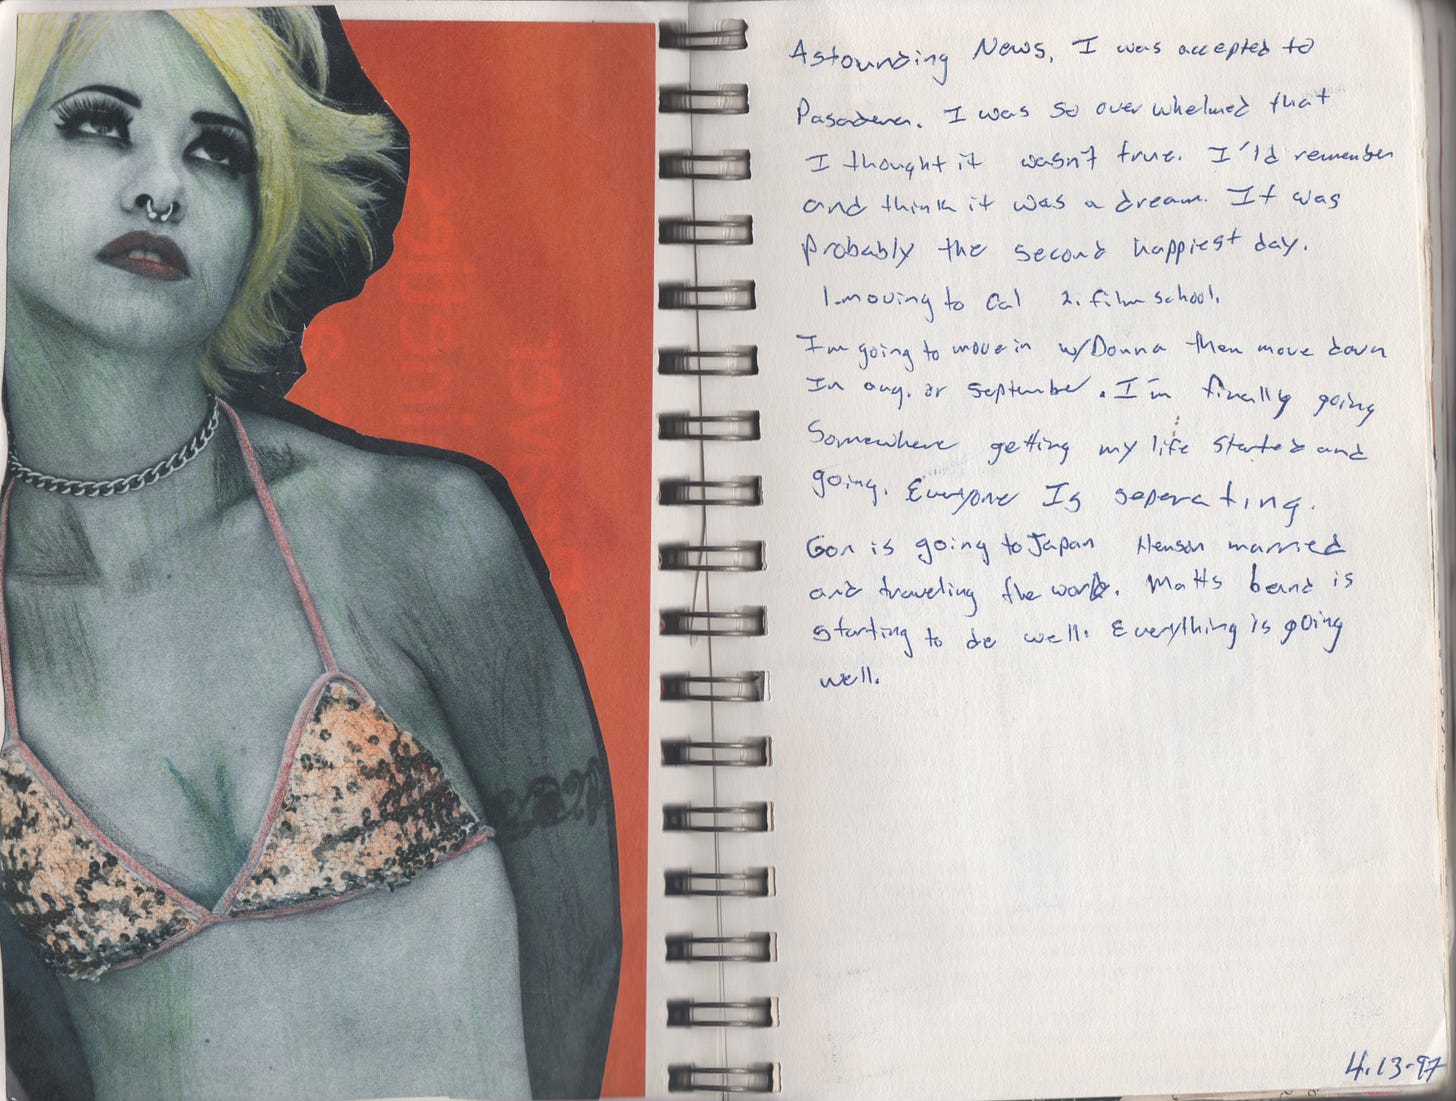 Astounding News, I was accepted to
Pasadena. I was so over whelmed that
I thought it wasn't true. I'ld remember
and think it was a dream. It was
Probably the second happiest day.
1. moving to Cal 2. film school.
I'm going to move in w/Donna then move down
In aug. or september. I'm finally going
Somewhere getting my life started and
going. Everyone Is seperating.
Gon is going to Japan Henson married
and traveling the world. Matts band is
starting to do well. Everything is going
well.
4.13-97